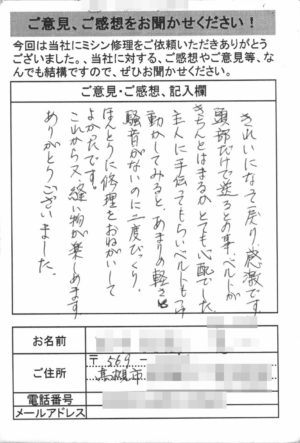 ご意見、ご感想をお聞かせください！
今回は当社にミシン修理をご依頼いただきありがとう
ございました。、当社に対する、ご感想やご意見等、な
んでも結構ですので、ぜひお聞かせください。
ご意見・ご感想、記入欄
きれいになって戻り、感激です。
頭部だけで送るとの事、ベルトが
きちんとはまるかとても心配でした。
主人に手伝ってもらいベルトもつけ
動かしてみると、あまりの軽さと
騒音がないのに二度びっくり
ほんとうに修理をおねがいして
よかったです。
これから又、縫い物が楽しめます
ありがとうございました。
お名前
ご住所
〒569-
高槻市
電話番号
メールアドレス